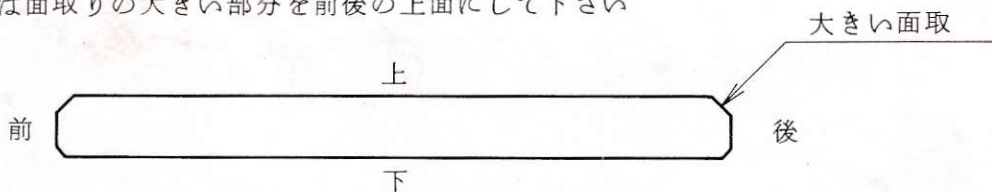 は面取りの大きい部分を前後の上面にして下さい
大きい面取
上
前
後
下